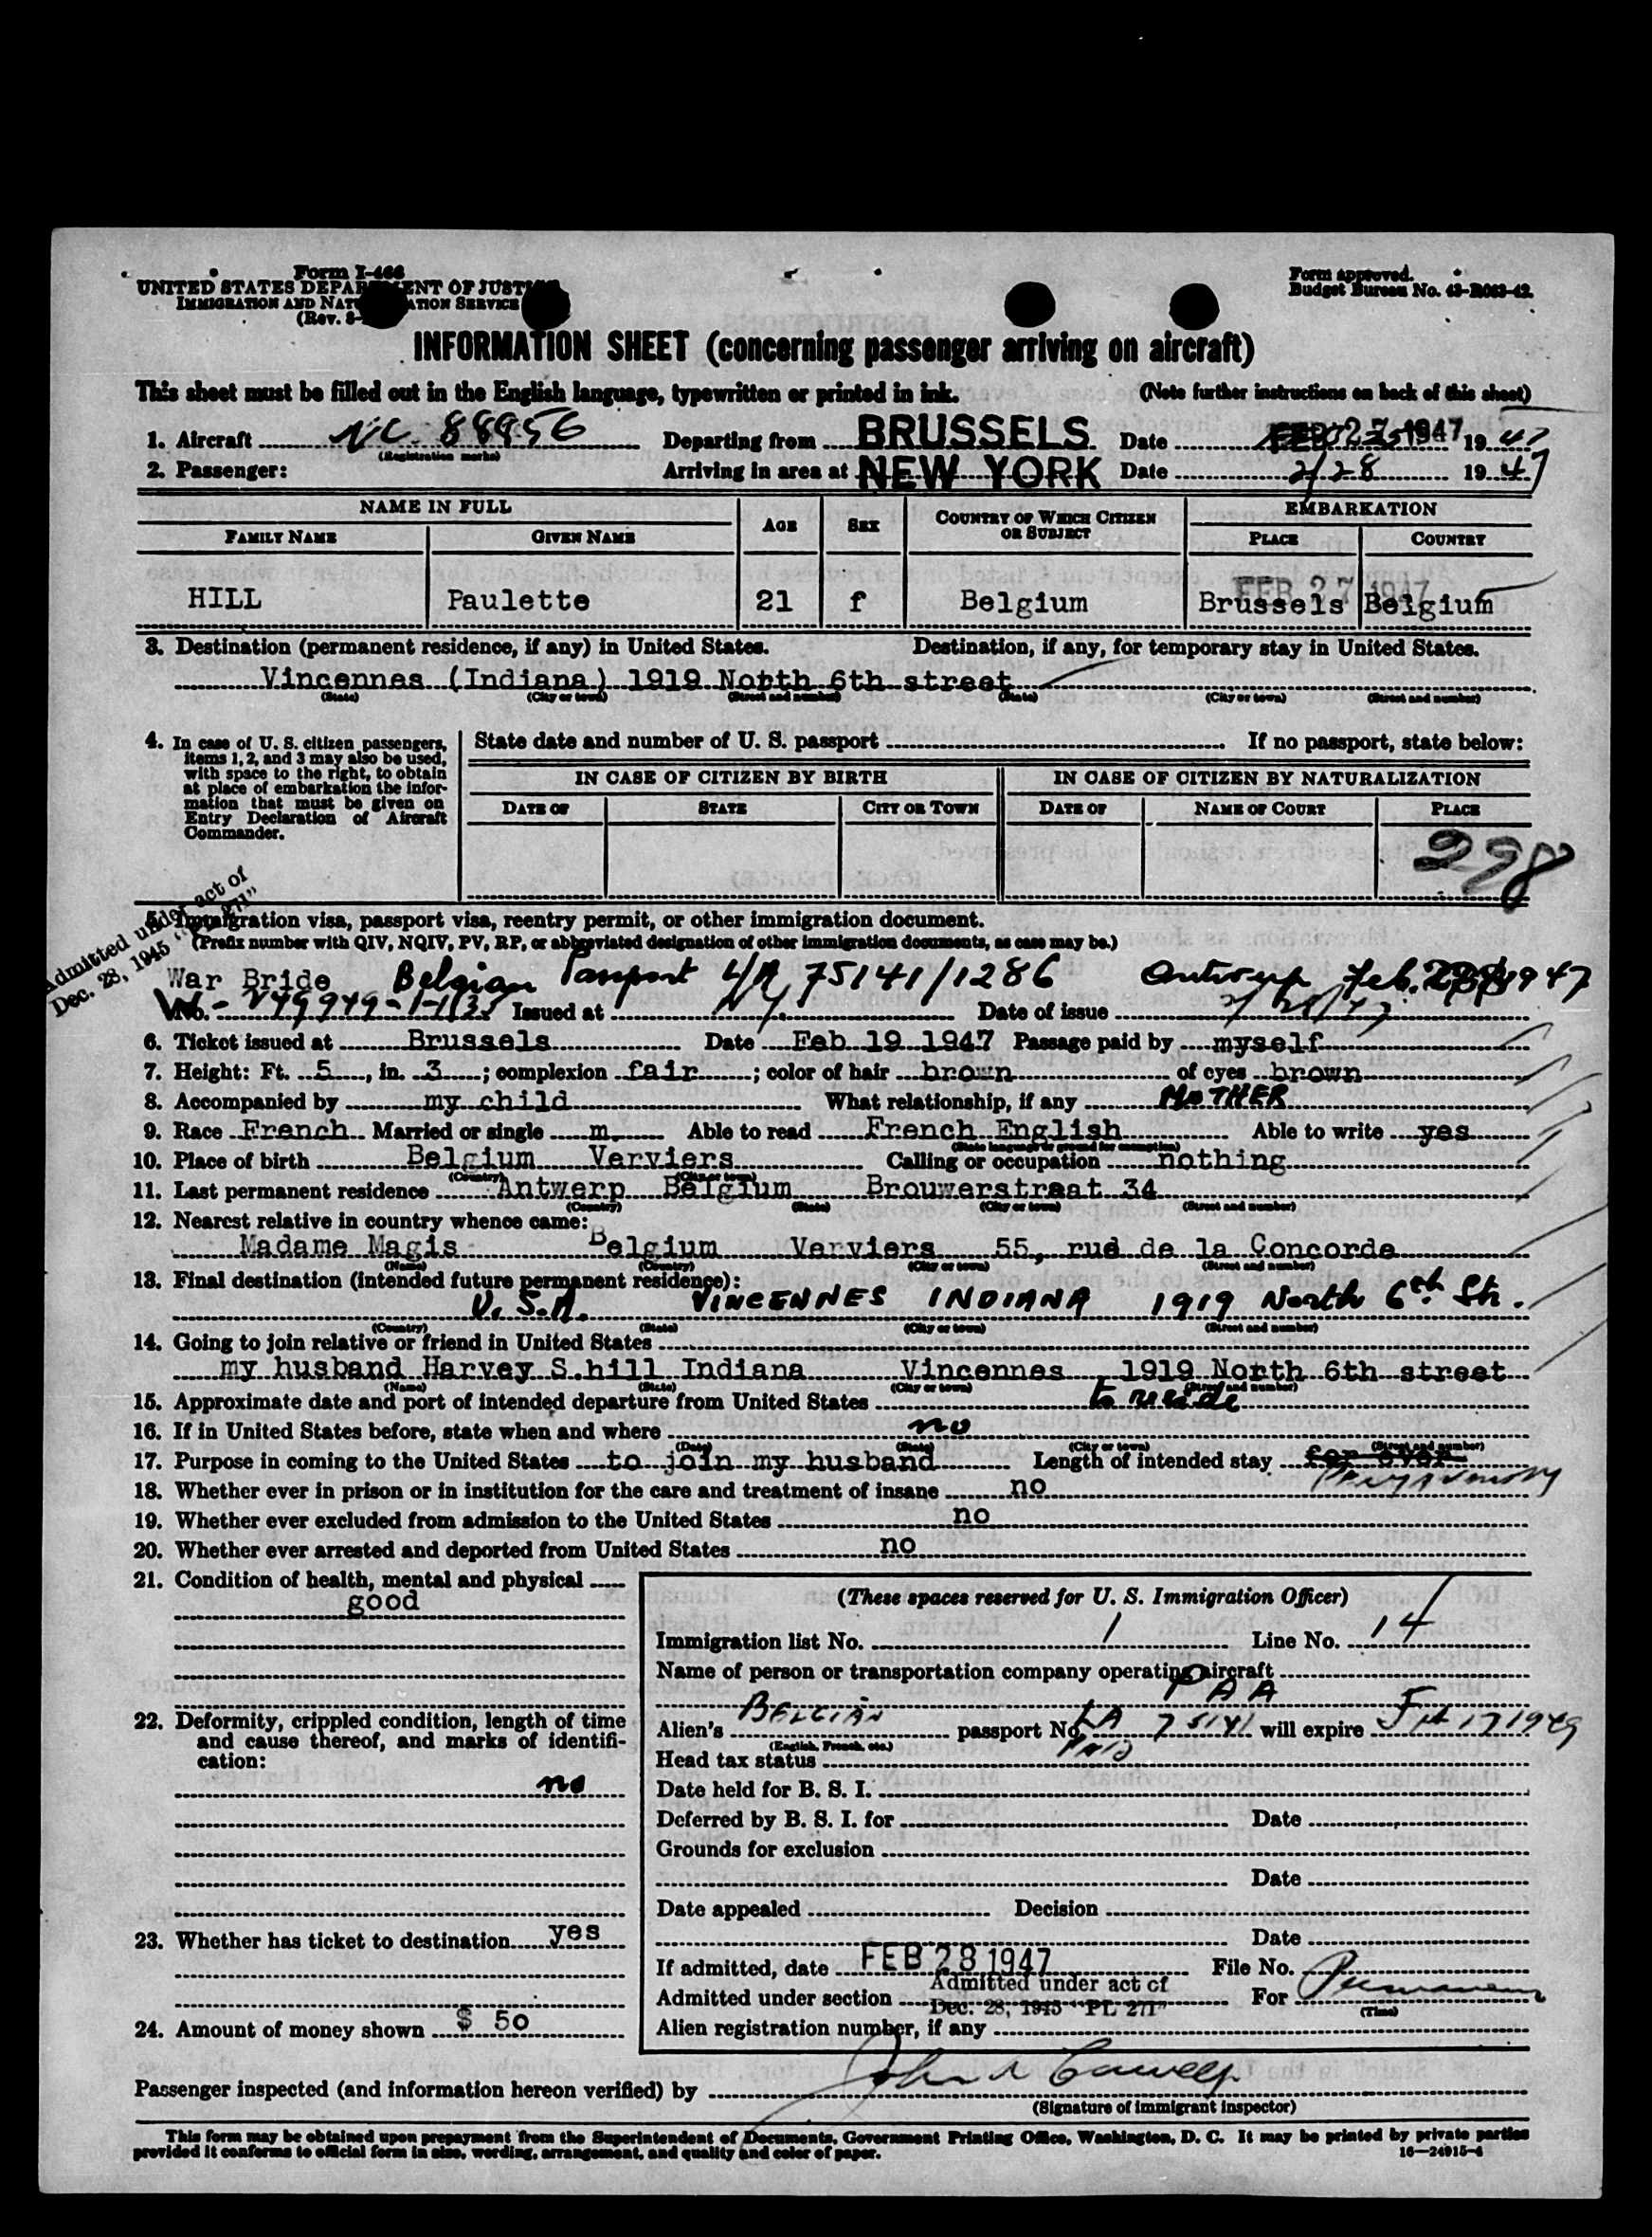 Form I-466
UNITED STATES DEPARTMENT OF JUSTICE
IMMIGRATION AND NATURALIZATION SERVICE
(Rev. 8-
Form approved.
Budget Bureau No. 43-R083-42.
INFORMATION SHEET (concerning passenger arriving on aircraft)
This sheet must be filled out in the English language, typewritten or printed in ink. (Note further instructions on back of this sheet)
1. Aircraft NC 88956 Departing from BRUSSELS Date FEB 27 1947 19 47
(Registration marks)
2. Passenger: Arriving in area at NEW YORK Date 2/28 19 47
NAME IN FULL AGE SEX COUNTRY OF WHICH CITIZEN OR SUBJECT EMBARKATION
FAMILY NAME GIVEN NAME PLACE COUNTRY
FEB 27 1947
HILL Paulette 21 f Belgium Brussels Belgium
3. Destination (permanent residence, if any) in United States. Destination, if any, for temporary stay in United States.
Vincennes (Indiana) 1919 North 6th street
(State) (City or town) (Street and number) (State) (City or town) (Street and number)
4. In case of U. S. citizen passengers, items 1, 2, and 3 may also be used, with space to the right, to obtain at place of embarkation the information that must be given on Entry Declaration of Aircraft Commander.
State date and number of U. S. passport If no passport, state below:
IN CASE OF CITIZEN BY BIRTH IN CASE OF CITIZEN BY NATURALIZATION
DATE OF STATE CITY OR TOWN DATE OF NAME OF COURT PLACE
298
Admitted under act of
Dec. 28, 1945 "PL 271"
5. Immigration visa, passport visa, reentry permit, or other immigration document.
(Prefix number with QIV, NQIV, PV, RP, or abbreviated designation of other immigration documents, as case may be.)
War Bride Belgian Passport L/A 75141/1286 Antwerp Feb. 1947
No. Issued at N.Y. Date of issue 2/28/47
6. Ticket issued at Brussels Date Feb 19 1947 Passage paid by myself
7. Height: Ft. 5, in. 3; complexion fair; color of hair brown of eyes brown
8. Accompanied by my child What relationship, if any MOTHER
9. Race French Married or single m. Able to read French English Able to write yes
(State language or ground for exemption)
10. Place of birth Belgium Verviers Calling or occupation nothing
(Country) (City or town)
11. Last permanent residence Antwerp Belgium Brouwerstraat 34
(Country) (State) (City or town) (Street and number)
12. Nearest relative in country whence came:
Madame Magis Belgium Verviers 55, rue de la Concorde
(Name) (Country) (City or town) (Street and number)
13. Final destination (intended future permanent residence):
U.S.A. VINCENNES INDIANA 1919 North 6th Str.
(Country) (State) (City or town) (Street and number)
14. Going to join relative or friend in United States
my husband Harvey S.hill Indiana Vincennes 1919 North 6th street
(Name) (State) (City or town) (Street and number)
15. Approximate date and port of intended departure from United States to reside
16. If in United States before, state when and where no
(Date) (State) (City or town) (Street and number)
17. Purpose in coming to the United States to join my husband Length of intended stay for ever
18. Whether ever in prison or in institution for the care and treatment of insane no
19. Whether ever excluded from admission to the United States no
20. Whether ever arrested and deported from United States no
21. Condition of health, mental and physical
good
22. Deformity, crippled condition, length of time and cause thereof, and marks of identification:
no
23. Whether has ticket to destination yes
24. Amount of money shown $ 50
(These spaces reserved for U. S. Immigration Officer)
Immigration list No. 1 Line No. 14
Name of person or transportation company operating aircraft
PAA
Alien's BELGIAN passport No. LA 75141 will expire 1949
(English, French, etc.)
Head tax status PAID
Date held for B. S. I.
Deferred by B. S. I. for Date
Grounds for exclusion
Date
Date appealed Decision
Date
If admitted, date FEB 28 1947 File No.
Admitted under section Admitted under act of Dec. 28, 1945 "PL 271" For
(Time)
Alien registration number, if any
Passenger inspected (and information hereon verified) by
(Signature of immigrant inspector)
This form may be obtained upon prepayment from the Superintendent of Documents, Government Printing Office, Washington, D. C. It may be printed by private parties
provided it conforms to official form in size, wording, arrangement, and quality and color of paper. 16—24915-4